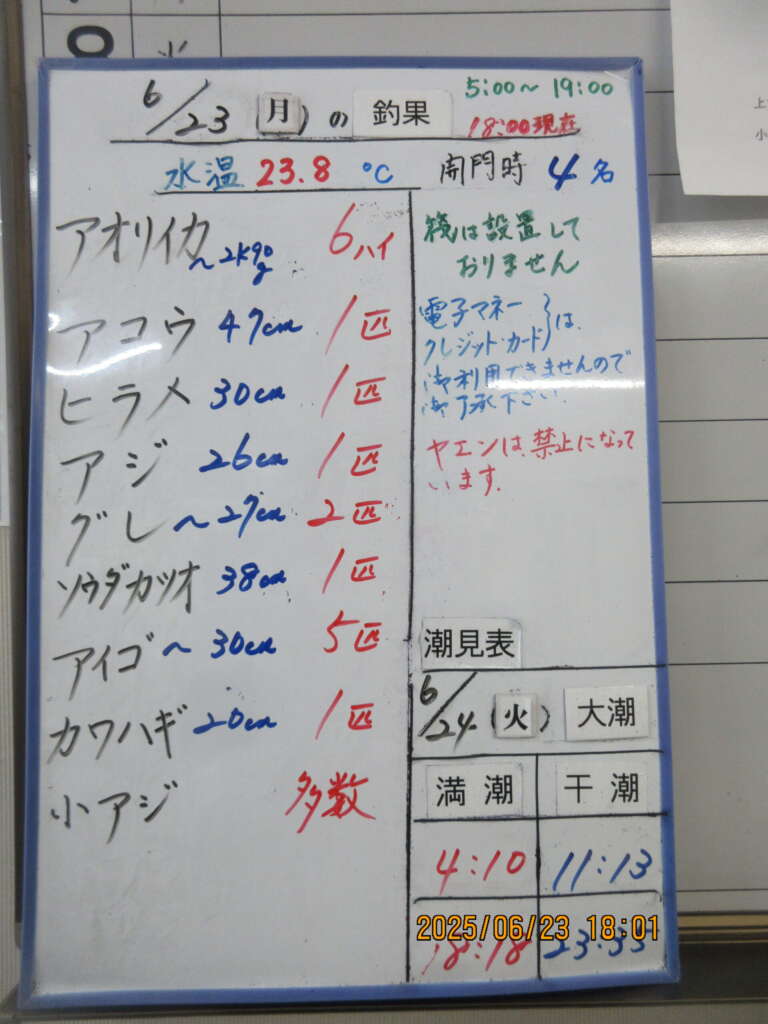 6/23(月)の釣果
5:00~19:00
18:00現在
水温 23.8 ℃
開門時 4名
アオリイカ ~2K90g 6ハイ
アコウ 47cm 1匹
ヒラメ 30cm 1匹
アジ 26cm 1匹
グレ ~27cm 2匹
ソウダカツオ 38cm 1匹
アイゴ ~30cm 5匹
カワハギ 20cm 1匹
小アジ 多数
筏は設置して
おりません
電子マネー
クレジット・カード}は、
御利用できませんので
御了承下さい.
ヤエンは、禁止になって
います.
潮見表
6/24(火) 大潮
満潮 干潮
4:10 11:13
18:18 23:35
2025/06/23 18:01